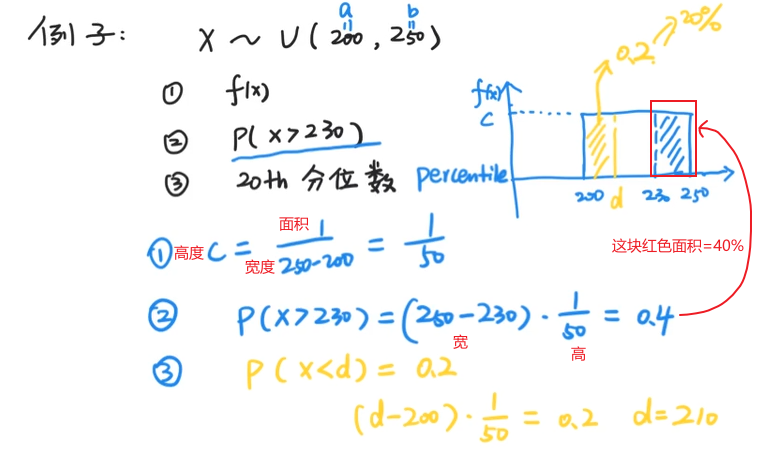 例子: X ~ U(200, 250)
a b
① f(x)
② P(x>230)
③ 20th 分位数 percentile
0.2 20%
f(x)
C
200 d 230 250
这块红色面积=40%
① 高度 C = 面积 1 / 宽度 250-200 = 1/50
② P(x>230) = (250-230) · 1/50 = 0.4
宽 高
③ P(x<d) = 0.2
(d-200) · 1/50 = 0.2 d=210